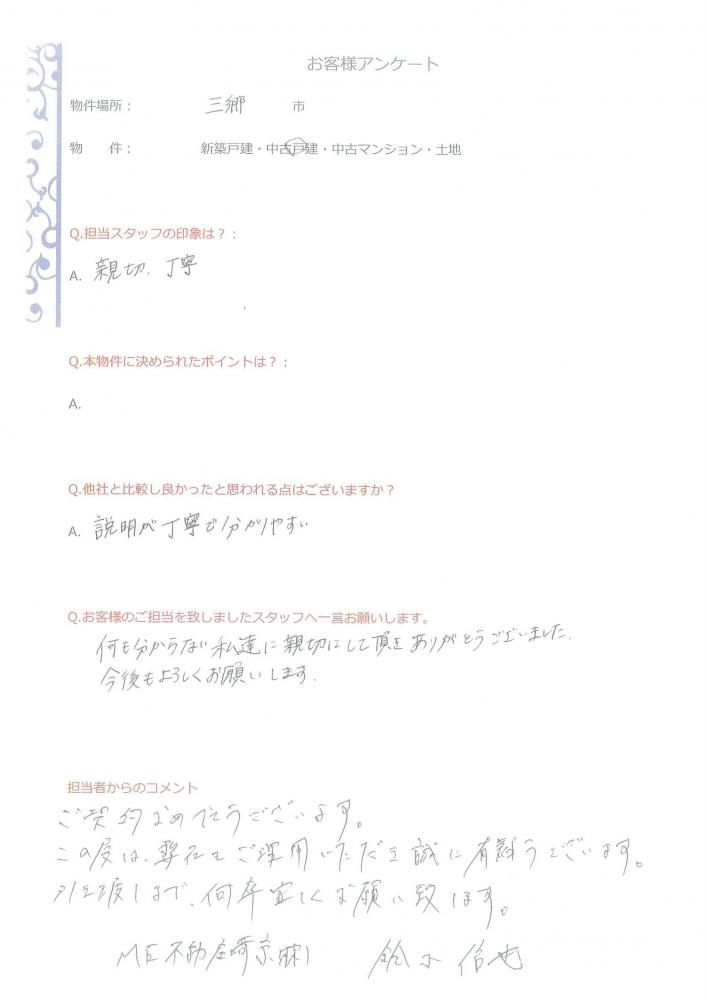 お客様アンケート
物件場所： 三郷 市
物　件： 新築戸建・中古戸建・中古マンション・土地
Q.担当スタッフの印象は？：
A. 親切、丁寧
Q.本物件に決められたポイントは？：
A.
Q.他社と比較し良かったと思われる点はございますか？
A. 説明が丁寧で分かりやすい
Q.お客様のご担当を致しましたスタッフへ一言お願いします。
何も分からない私達に親切にして頂きありがとうございました。
今後もよろしくお願いします。
担当者からのコメント
ご契約おめでとうございます。
この度は、弊社をご運用いただき誠に有難うございます。
引き渡しまで、何卒宜しくお願い致します。
ME不動産埼京㈱ 鈴木